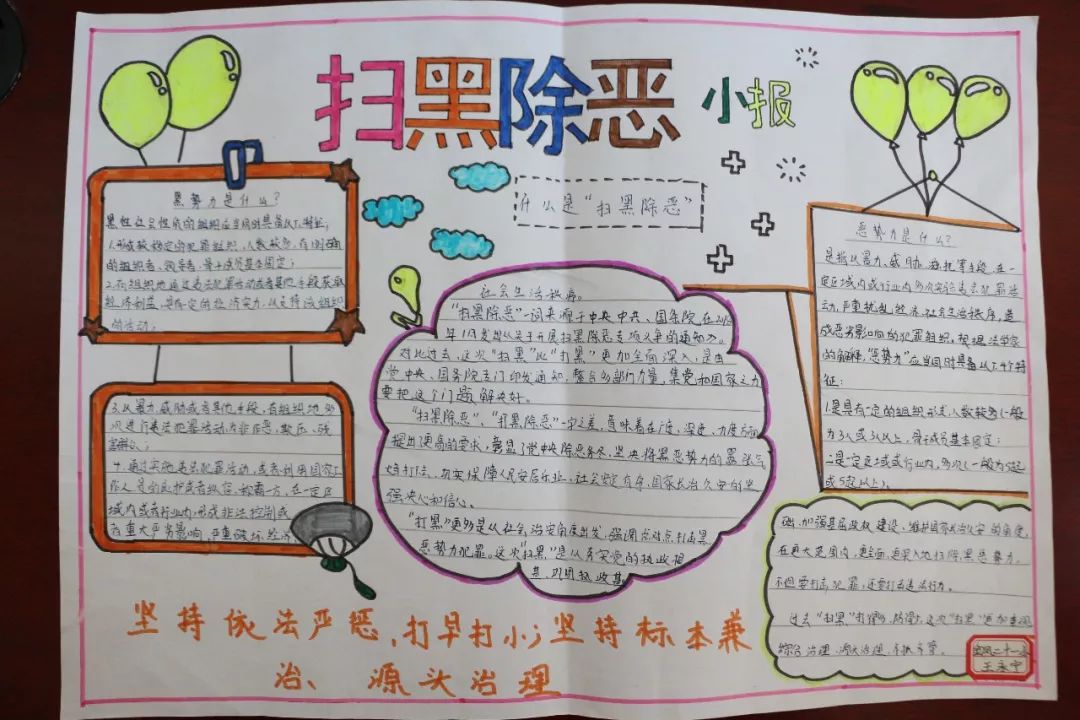 扫黑除恶 小报
什么是“扫黑除恶”
黑势力是什么?
黑性社会性质的组织应当同时具备以下特征:
1.形成较稳定的犯罪组织,人数较多,有明确
的组织者、领导者,骨干成员基本固定;
2.有组织地通过违法犯罪活动或者其他手段获取
经济利益,具有一定的经济实力,以支持该组织
的活动;
3.以暴力、威胁或者其他手段,有组织地多
次进行违法犯罪活动,为非作恶,欺压、残
害群众;
4.通过实施违法犯罪活动,或者利用国家工
作人员的包庇或者纵容,称霸一方,在一定区
域内或者行业内,形成非法控制或
者重大影响,严重破坏经济
社会生活秩序。
“扫黑除恶”一词来源于中央中共、国务院在2018
年1月发出《关于开展扫黑除恶专项斗争的通知》。
对比过去,这次“扫黑”比“打黑”更加全面深入,是由
党中央、国务院专门印发通知,整合多部门力量,集党和国家之力
要把这个问题解决好。
“扫黑除恶”、“打黑除恶”一字之差,意味着在广度、深度、力度方面
提出了更高的要求,彰显了党中央除恶务尽,坚决将黑恶势力的嚣张气
焰打下去,切实保障人民安居乐业,社会安定有序,国家长治久安的坚
强决心和信心。
“打黑”更多是从社会治安角度出发,强调点对点打击黑
恶势力犯罪。这次“扫黑”是从夯实党的执政根
基、巩固执政基
恶势力是什么?
是指以暴力、威胁、滋扰等手段,在一
定区域内或行业内多次实施违法犯罪活
动,严重扰乱经济、社会生活秩序,造
成恶劣影响的犯罪组织,根据法学家
的解释,“恶势力”应当同时具备以下4个特
征:
1.是具有一定的组织形式,人数较多(一般
为3人或3人以上),骨干成员基本固定;
2.是一定区域或行业内,多次(一般为5起
或5起以上)。
础,加强基层政权建设,维护国家长治久安的角度,
在更大范围内,更全面,更深入地扫除黑恶势力,
不但要打击犯罪,还要打击违法行为。
综合治理、源头治理、
王永宁
坚持依法严惩,打早打小;坚持标本兼
治、源头治理